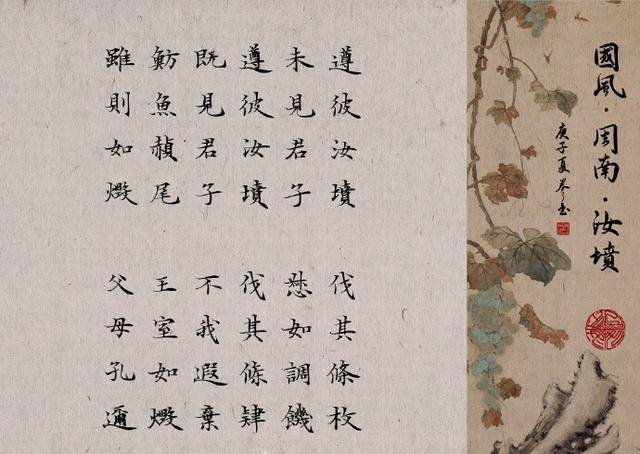 國風·周南·汝墳
庚子夏
遵彼汝墳 伐其條枚
未見君子 惄如調饑
遵彼汝墳 伐其條肄
既見君子 不我遐棄
魴魚赬尾 王室如燬
雖則如燬 父母孔邇